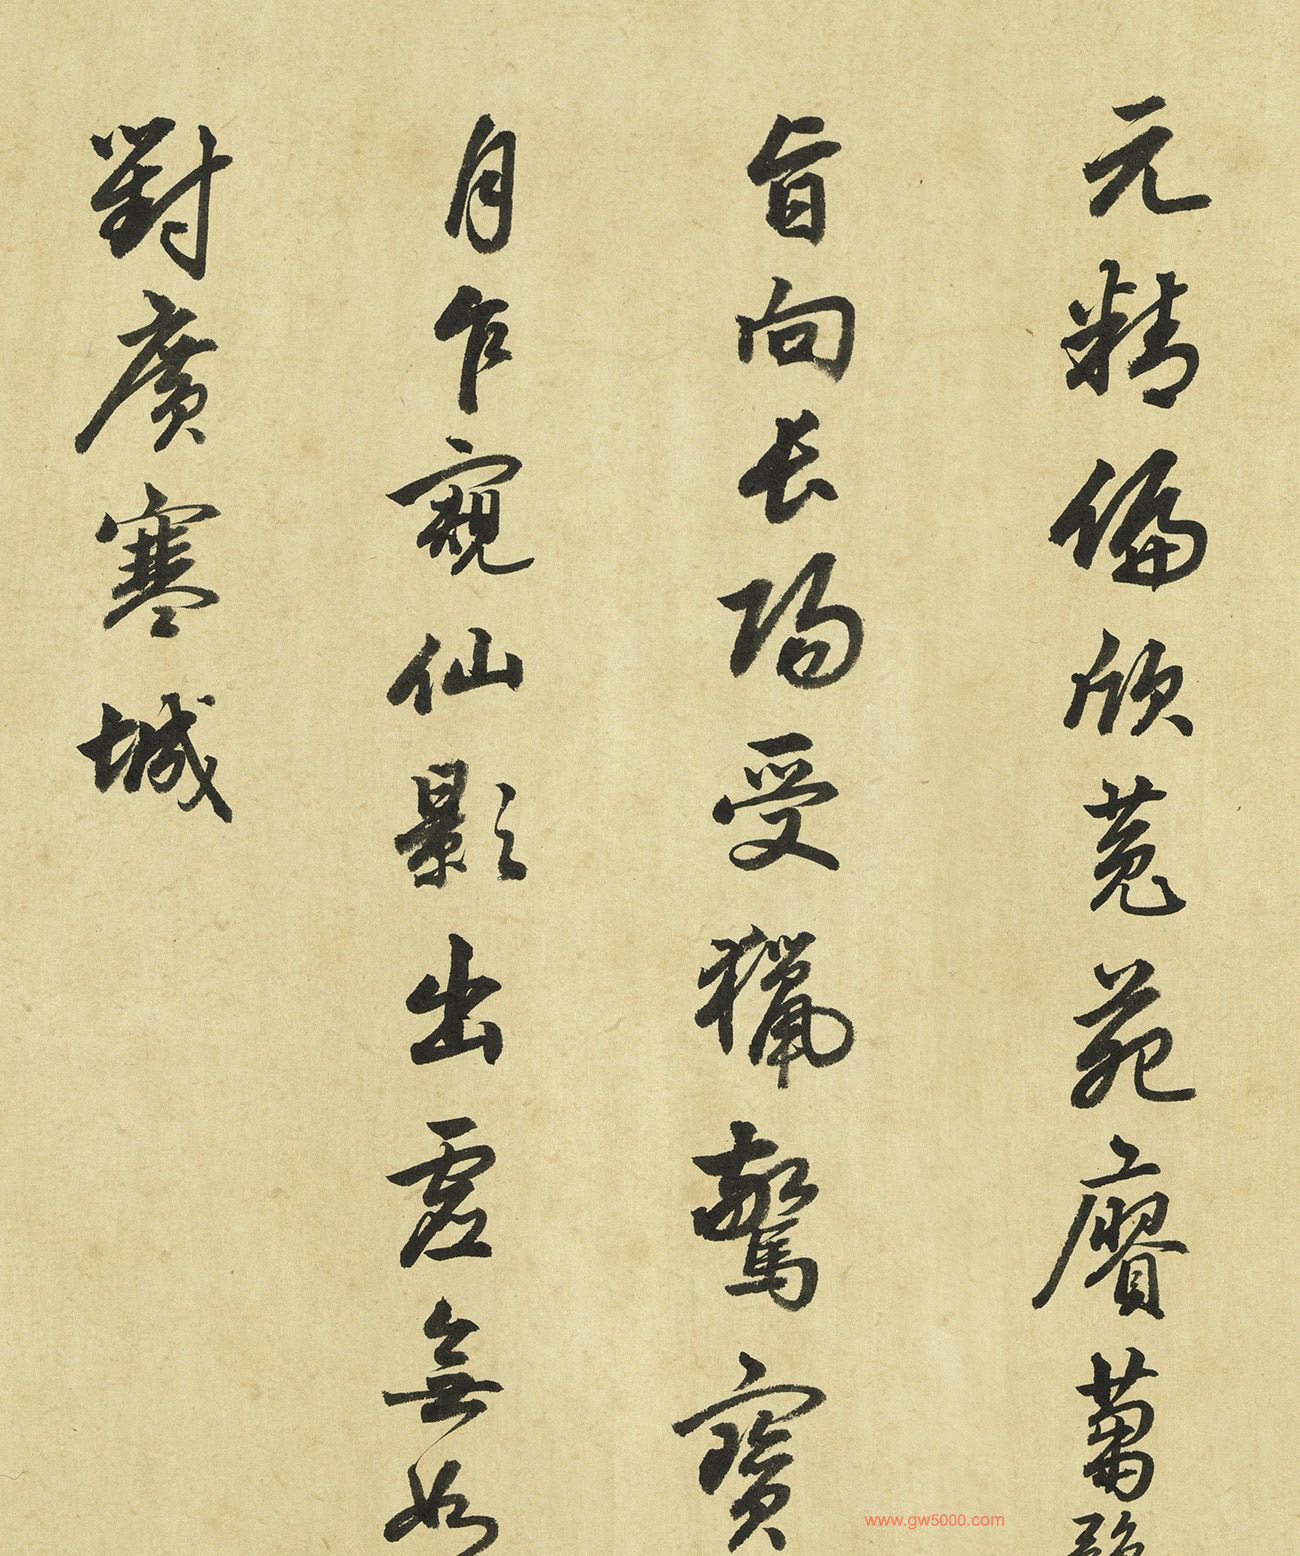 元精偏欣菟苑賡蕭
旨向长陽受獵驚寶
月乍窺仙影出虛無如
對廣寒城
www.gw5000.com